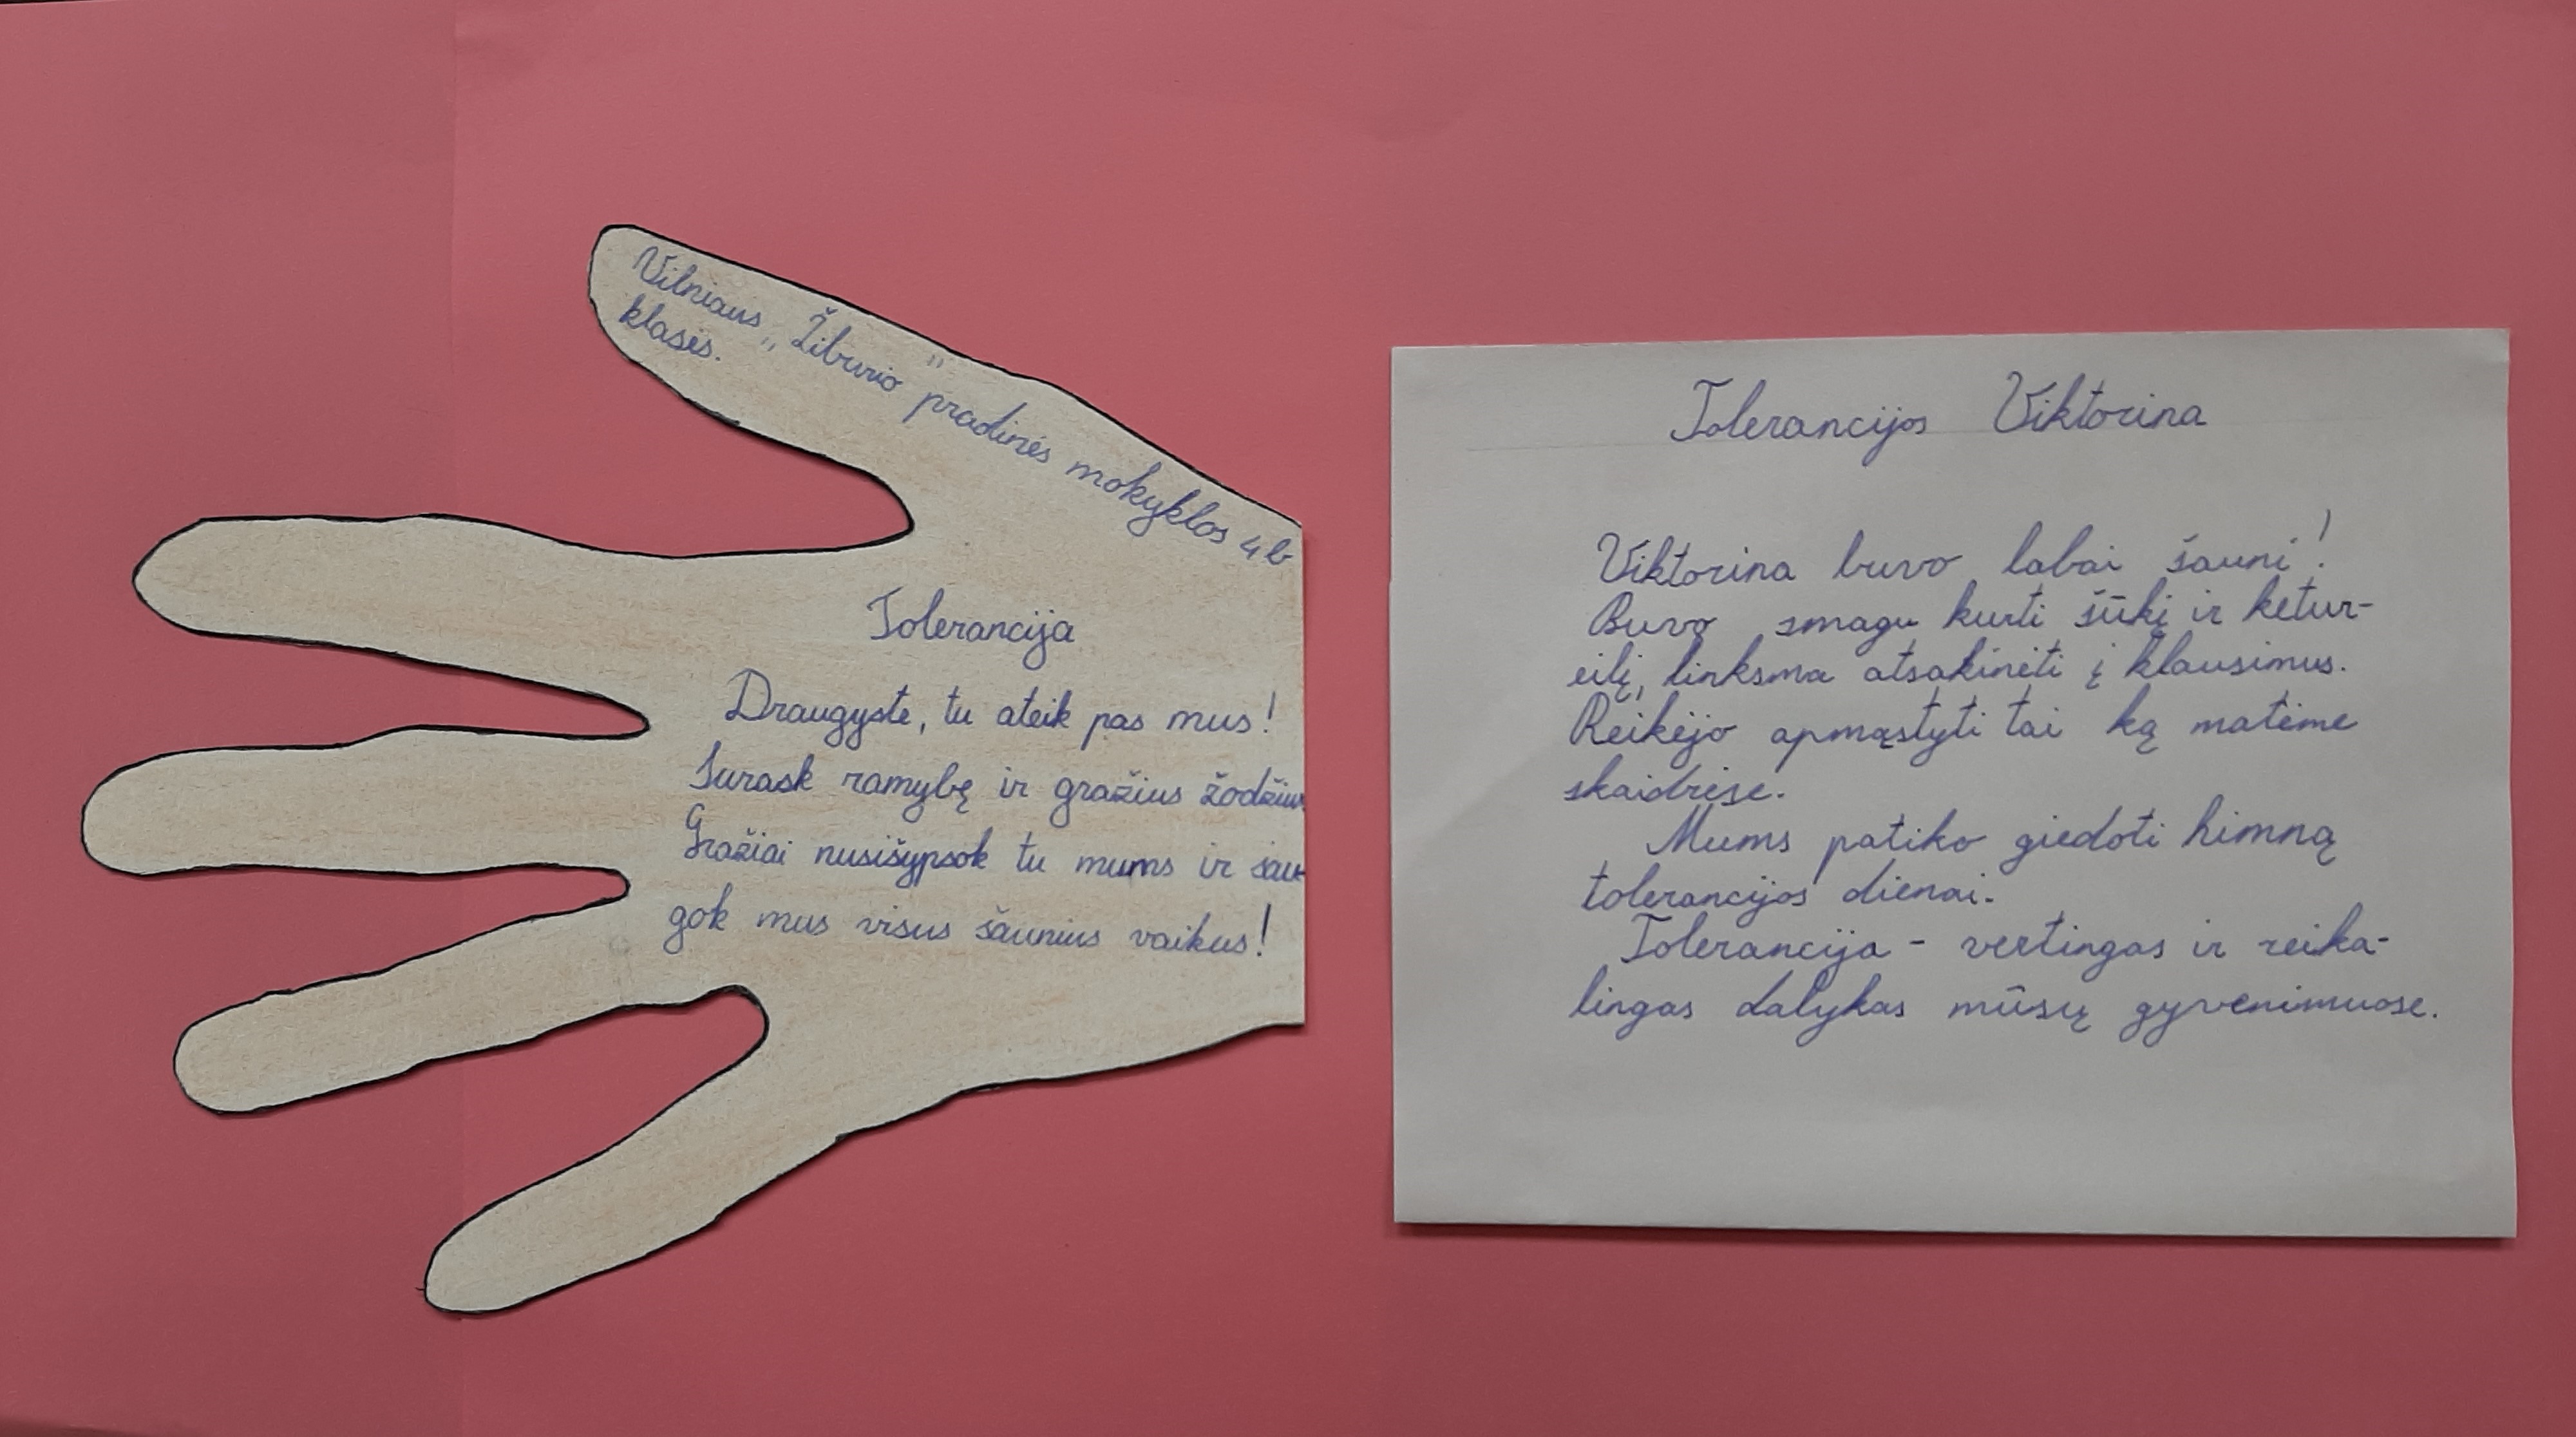 Vilniaus „Žiburio" pradinės mokyklos 4 b
klasės.
Tolerancija
Draugyste, tu ateik pas mus!
Surask ramybę ir gražius žodžius.
Gražiai nusišypsok tu mums ir sau-
gok mus visus šaunius vaikus!
Tolerancijos Viktorina
Viktorina buvo labai šauni!
Buvo smagu kurti šūkį ir ketur-
eilį, linksma atsakinėti į klausimus.
Reikėjo apmąstyti tai ką matėme
skaidrėse.
Mums patiko giedoti himną
tolerancijos dienai.
Tolerancija - vertingas ir reika-
lingas dalykas mūsų gyvenimuose.